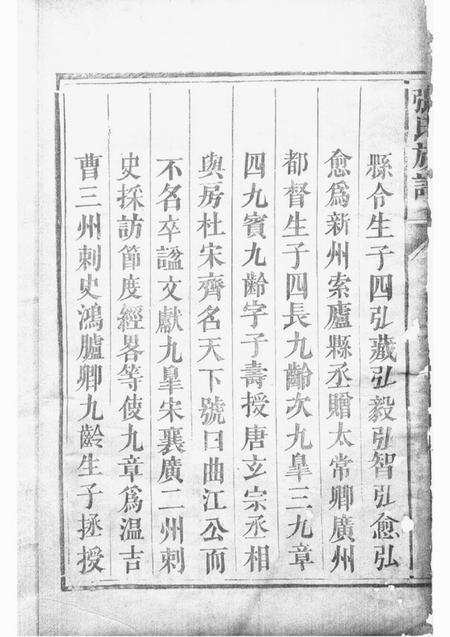 張氏族譜
縣令生子四弘藏弘毅弘智弘愈弘
愈爲新州索廬縣丞贈太常卿廣州
都督生子四長九齡次九臯三九章
四九賓九齡字子壽授唐玄宗丞相
與房杜宋齊名天下號曰曲江公而
不名卒諡文獻九臯宋襄廣二州刺
史採訪節度經畧等使九章爲温吉
曹三州刺史鴻臚卿九齡生子拯授